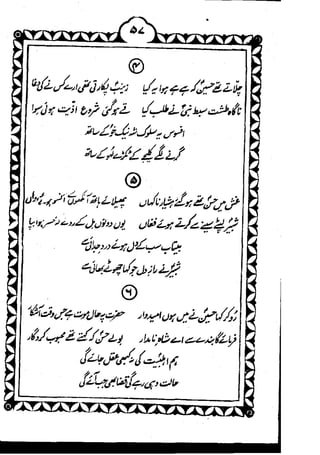 ۵۷
۴
چلاتے تھے حسینؑ کہ ہے ہے ہوا یہ کیا زینبؑ پکارتی تھی ارے کس نے کی دغا
ناگاہ طشت سبط نبیؐ نے طلب کیا قے ہوگئی شروع اذیت ہوئی سوا
افسوس یہ سلوک نیک خو کے ساتھ
گرنے لگے کلیجے کے ٹکڑے لہو کے ساتھ
۵
غش میں حسنؑ تھے ہوگئے ہشیار ناگہاں پھیلائے ہاتھ آنکھوں آنسو ہوئے رواں
شبیرؑ لپٹے سینے سے کرتے ہوئے فغاں یوں دونوں مل کے روئے کہ
بیتاب سب کے دل ہوئے درد جدائی سے
شبرؑ نے راز دل جو کہا چھوٹے بھائی سے
۶
رو کر کہا حسینؑ نے میں ہوں امیدوار حضرت پہ حال موت ہے جس وقت آشکار
فرمائے گا بندے سے اے شاہ نامدار بولے حسنؑ کہ کہتے تھے محبوب کردگار
ہم اہلبیت کی یہی عقل جائے گی
حالت وہی رہے گی قضا بھی جب آئے گی